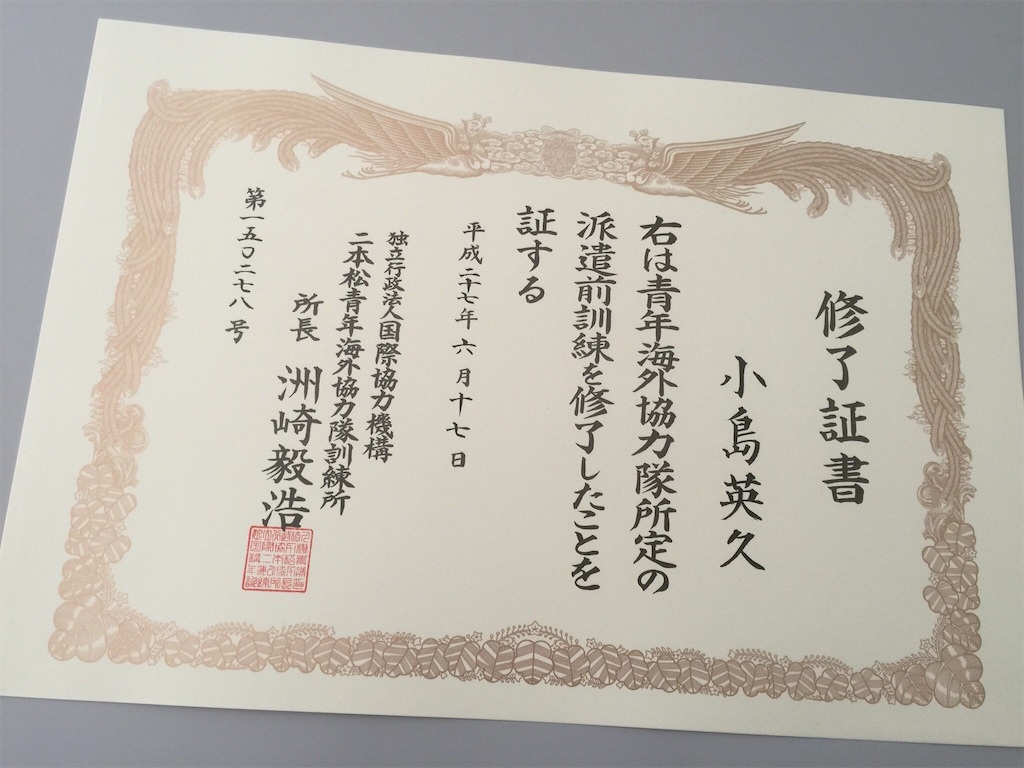 修了証書
小島英久
右は青年海外協力隊所定の
派遣前訓練を修了したことを
証する
平成二十七年六月十七日
独立行政法人国際協力機構
二本松青年海外協力隊訓練所
所長 洲崎毅浩
第一五〇二七八号